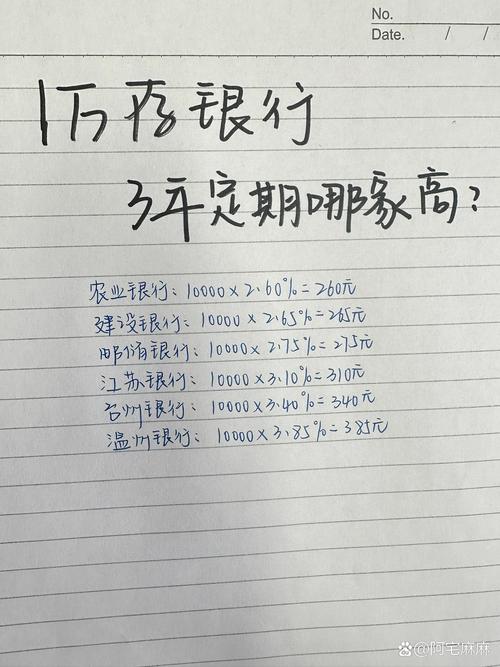 No.
Date. / /
1万存银行
3年定期哪家高?
农业银行: 10000×2.60%=260元
建设银行: 10000×2.65%=265元
邮储银行: 10000×2.75%=275元
江苏银行: 10000×3.10%=310元
台州银行: 10000×3.40%=340元
温州银行: 10000×3.85%=385元
@阿宅麻麻